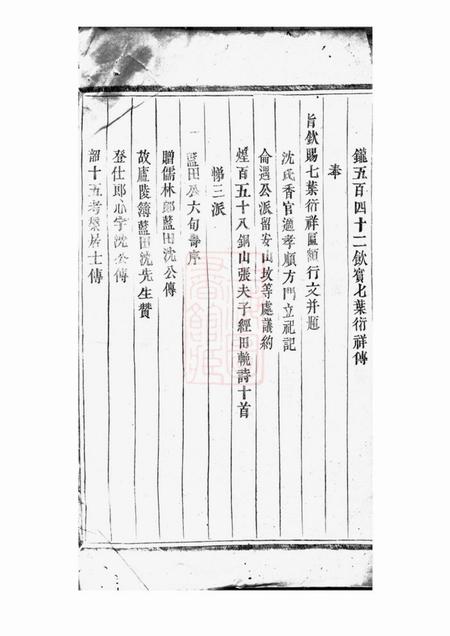 鑨五百四十二欽賓七葉衍祥傳
奉
旨欽賜七葉衍祥匾額行文并題
沈氏香官迤孝順方門立祀記
侖遇公派留安山坟等處議約
煙百五十八銅山張夫子經田輓詩十首
悌三派
藍田公六旬壽序
贈儒林郎藍田沈公傳
故廬陵簿藍田沈先生贊
登仕郎心宇沈公傳
韶十五考槃居士傳